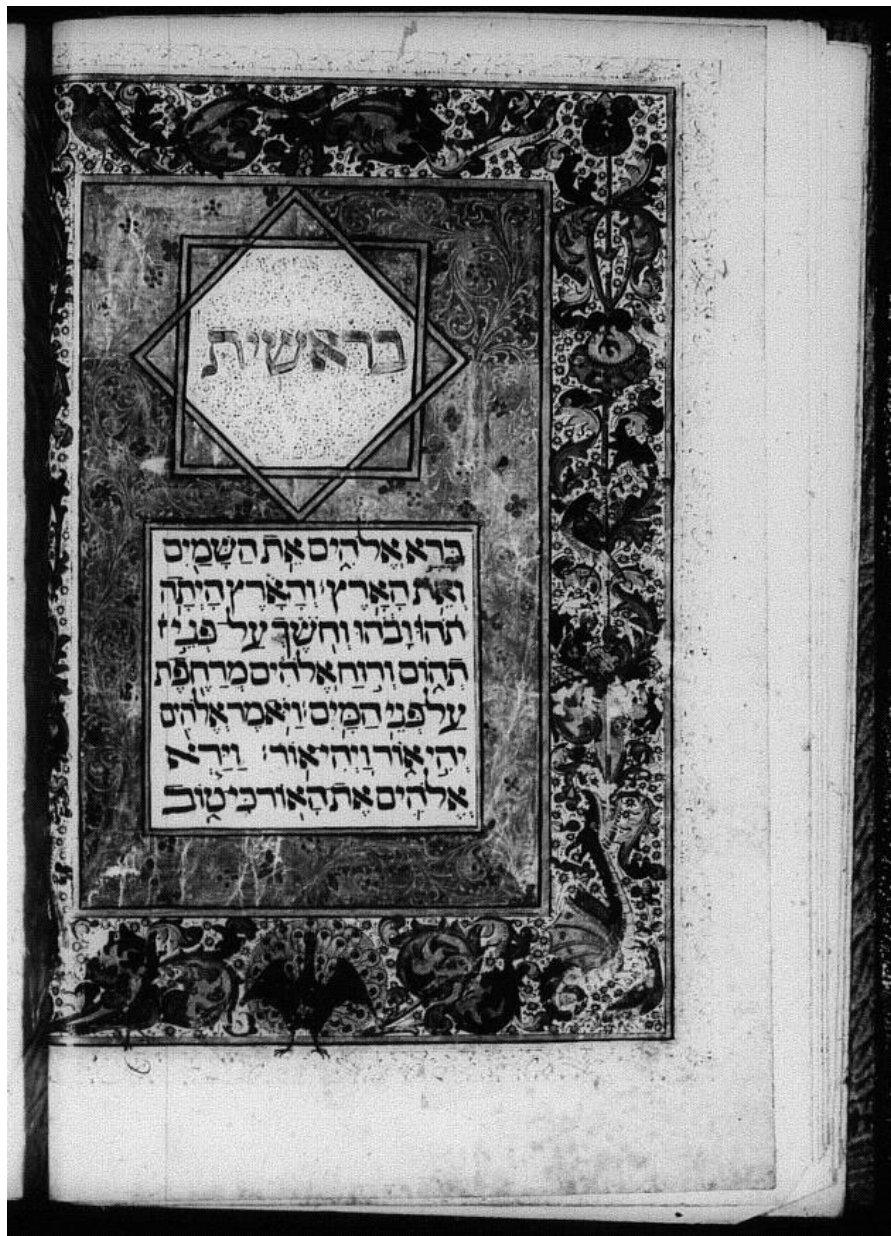 בראשית
בָּרָא אֱלֹהִים אֵת הַשָּׁמַיִם
וְאֵת הָאָרֶץ׃ וְהָאָרֶץ הָיְתָה
תֹהוּ וָבֹהוּ וְחֹשֶׁךְ עַל פְּנֵי
תְהוֹם וְרוּחַ אֱלֹהִים מְרַחֶפֶת
עַל פְּנֵי הַמָּיִם׃ וַיֹּאמֶר אֱלֹהִים
יְהִי אוֹר וַיְהִי אוֹר׃ וַיַּרְא
אֱלֹהִים אֶת הָאוֹר כִּי טוֹב